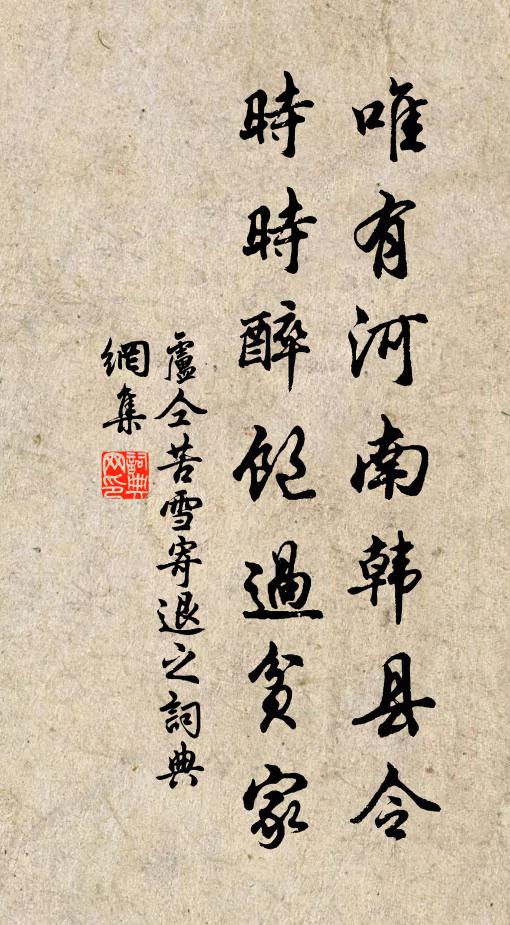 唯有河南韩县令
時時醉飽過貧家
盧仝苦雪寄退之詞典
網集
詞典
网印